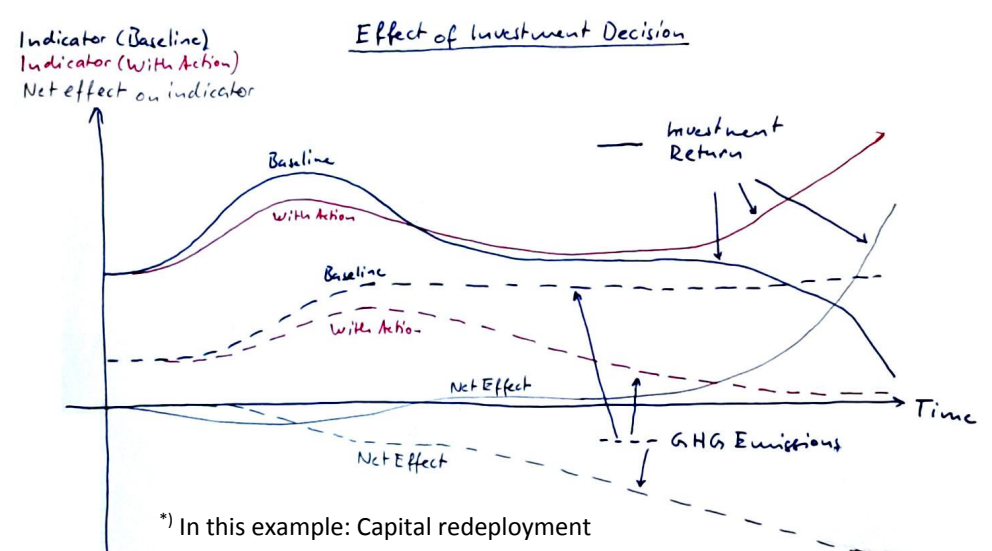 Effect of Investment Decision
Indicator (Baseline)
Indicator (With Action)
Net effect on indicator
Investment
Return
Baseline
With Action
Baseline
With Action
Net Effect
Time
GHG Emissions
Net Effect
*) In this example: Capital redeployment